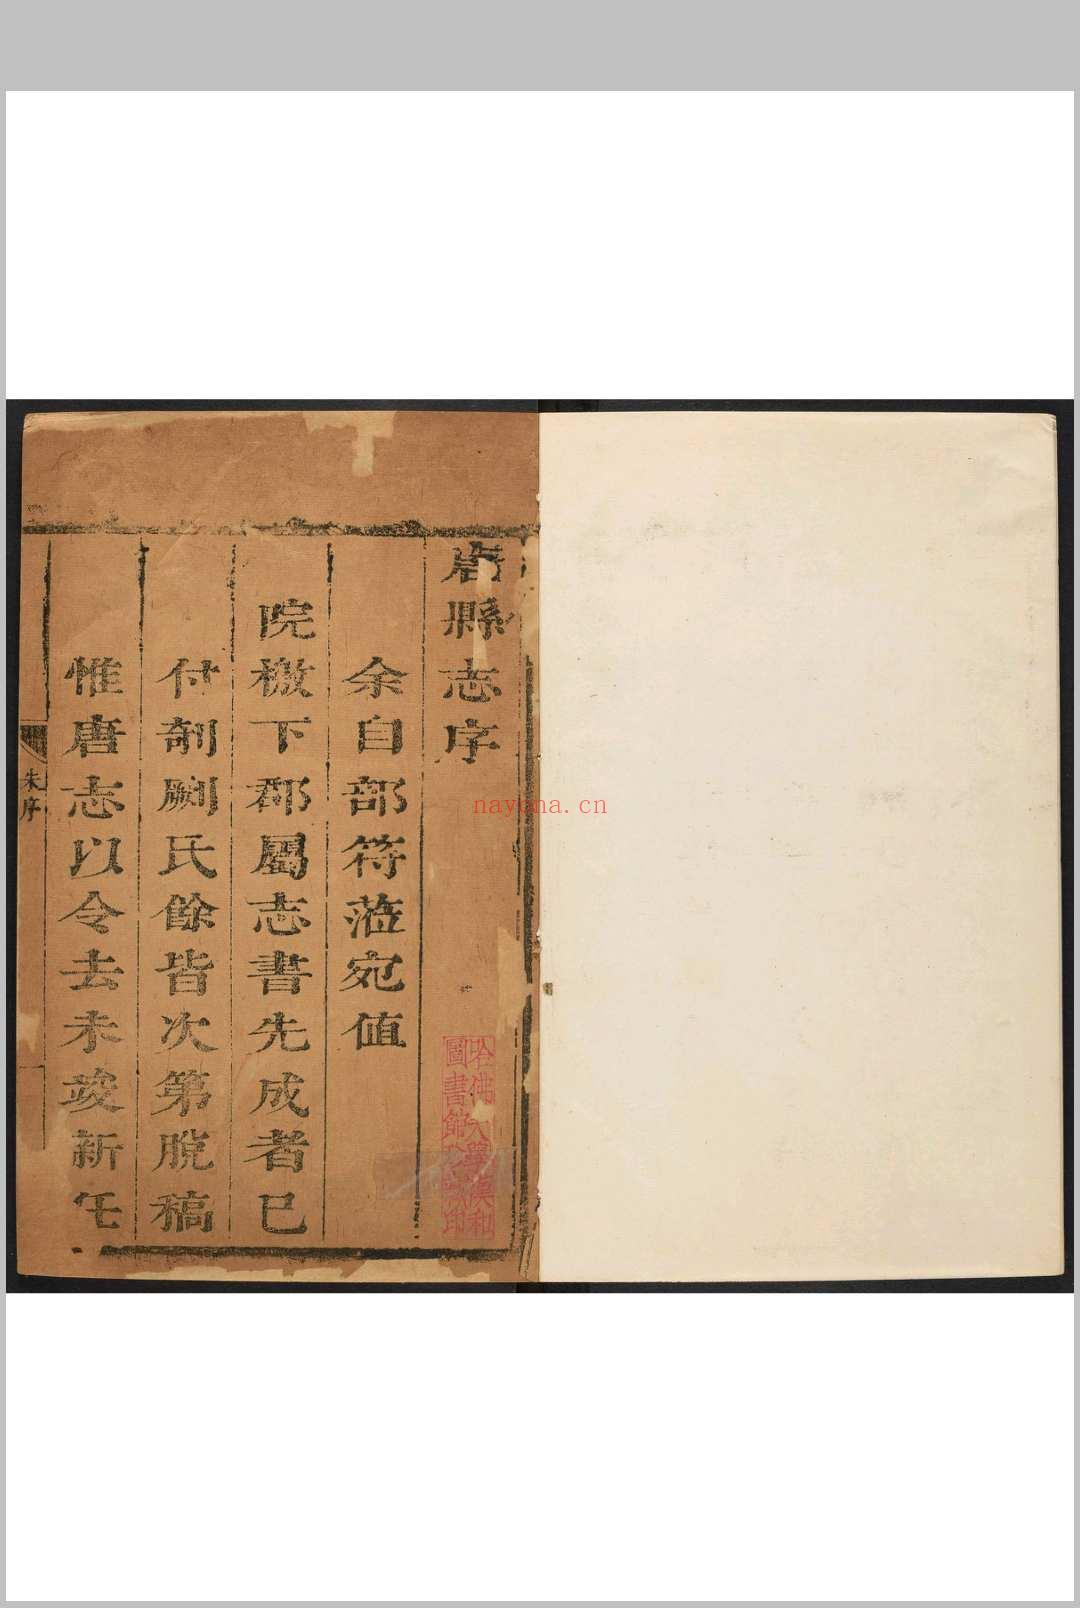 唐縣志序
余自部符蒞宛值
院檄下郡屬志書先成者已
付剞劂氏餘皆次第脫稿
惟唐志以令去未竣新任
朱序
一
哈佛大學漢和
圖書館珍藏印
nayona.cn